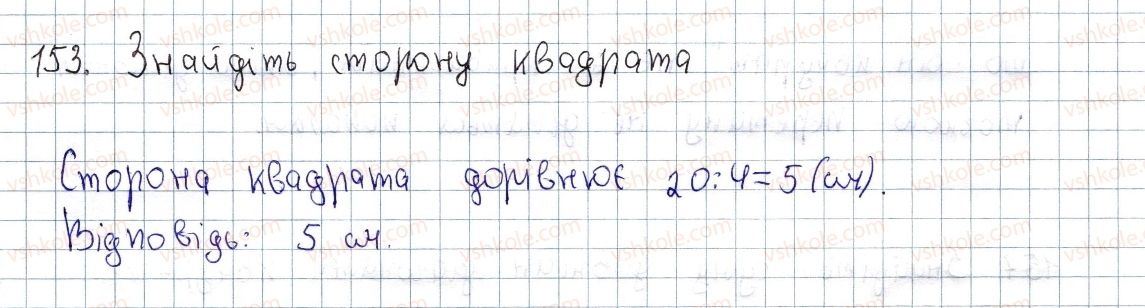 153. Знайдіть сторону квадрата
Сторона квадрата дорівнює 20:4=5 (см).
Відповідь: 5 см.